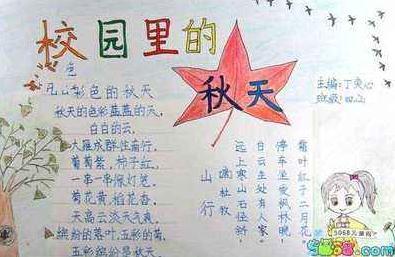 校园里的
秋天
主编:丁
班级:四
彩色的秋天
秋天的色彩蓝蓝的天,
白白的云,
大雁成群往南行。
葡萄紫 柿子红,
一串一串像灯笼。
菊花黄 稻花香
天高云淡天气爽
缤纷的落叶,五彩的菊
五彩缤纷是秋天
山行
唐杜牧
远上寒山石径斜,
白云生处有人家。
停车坐爱枫林晚,
霜叶红于二月花。
5068儿童网
5068.com